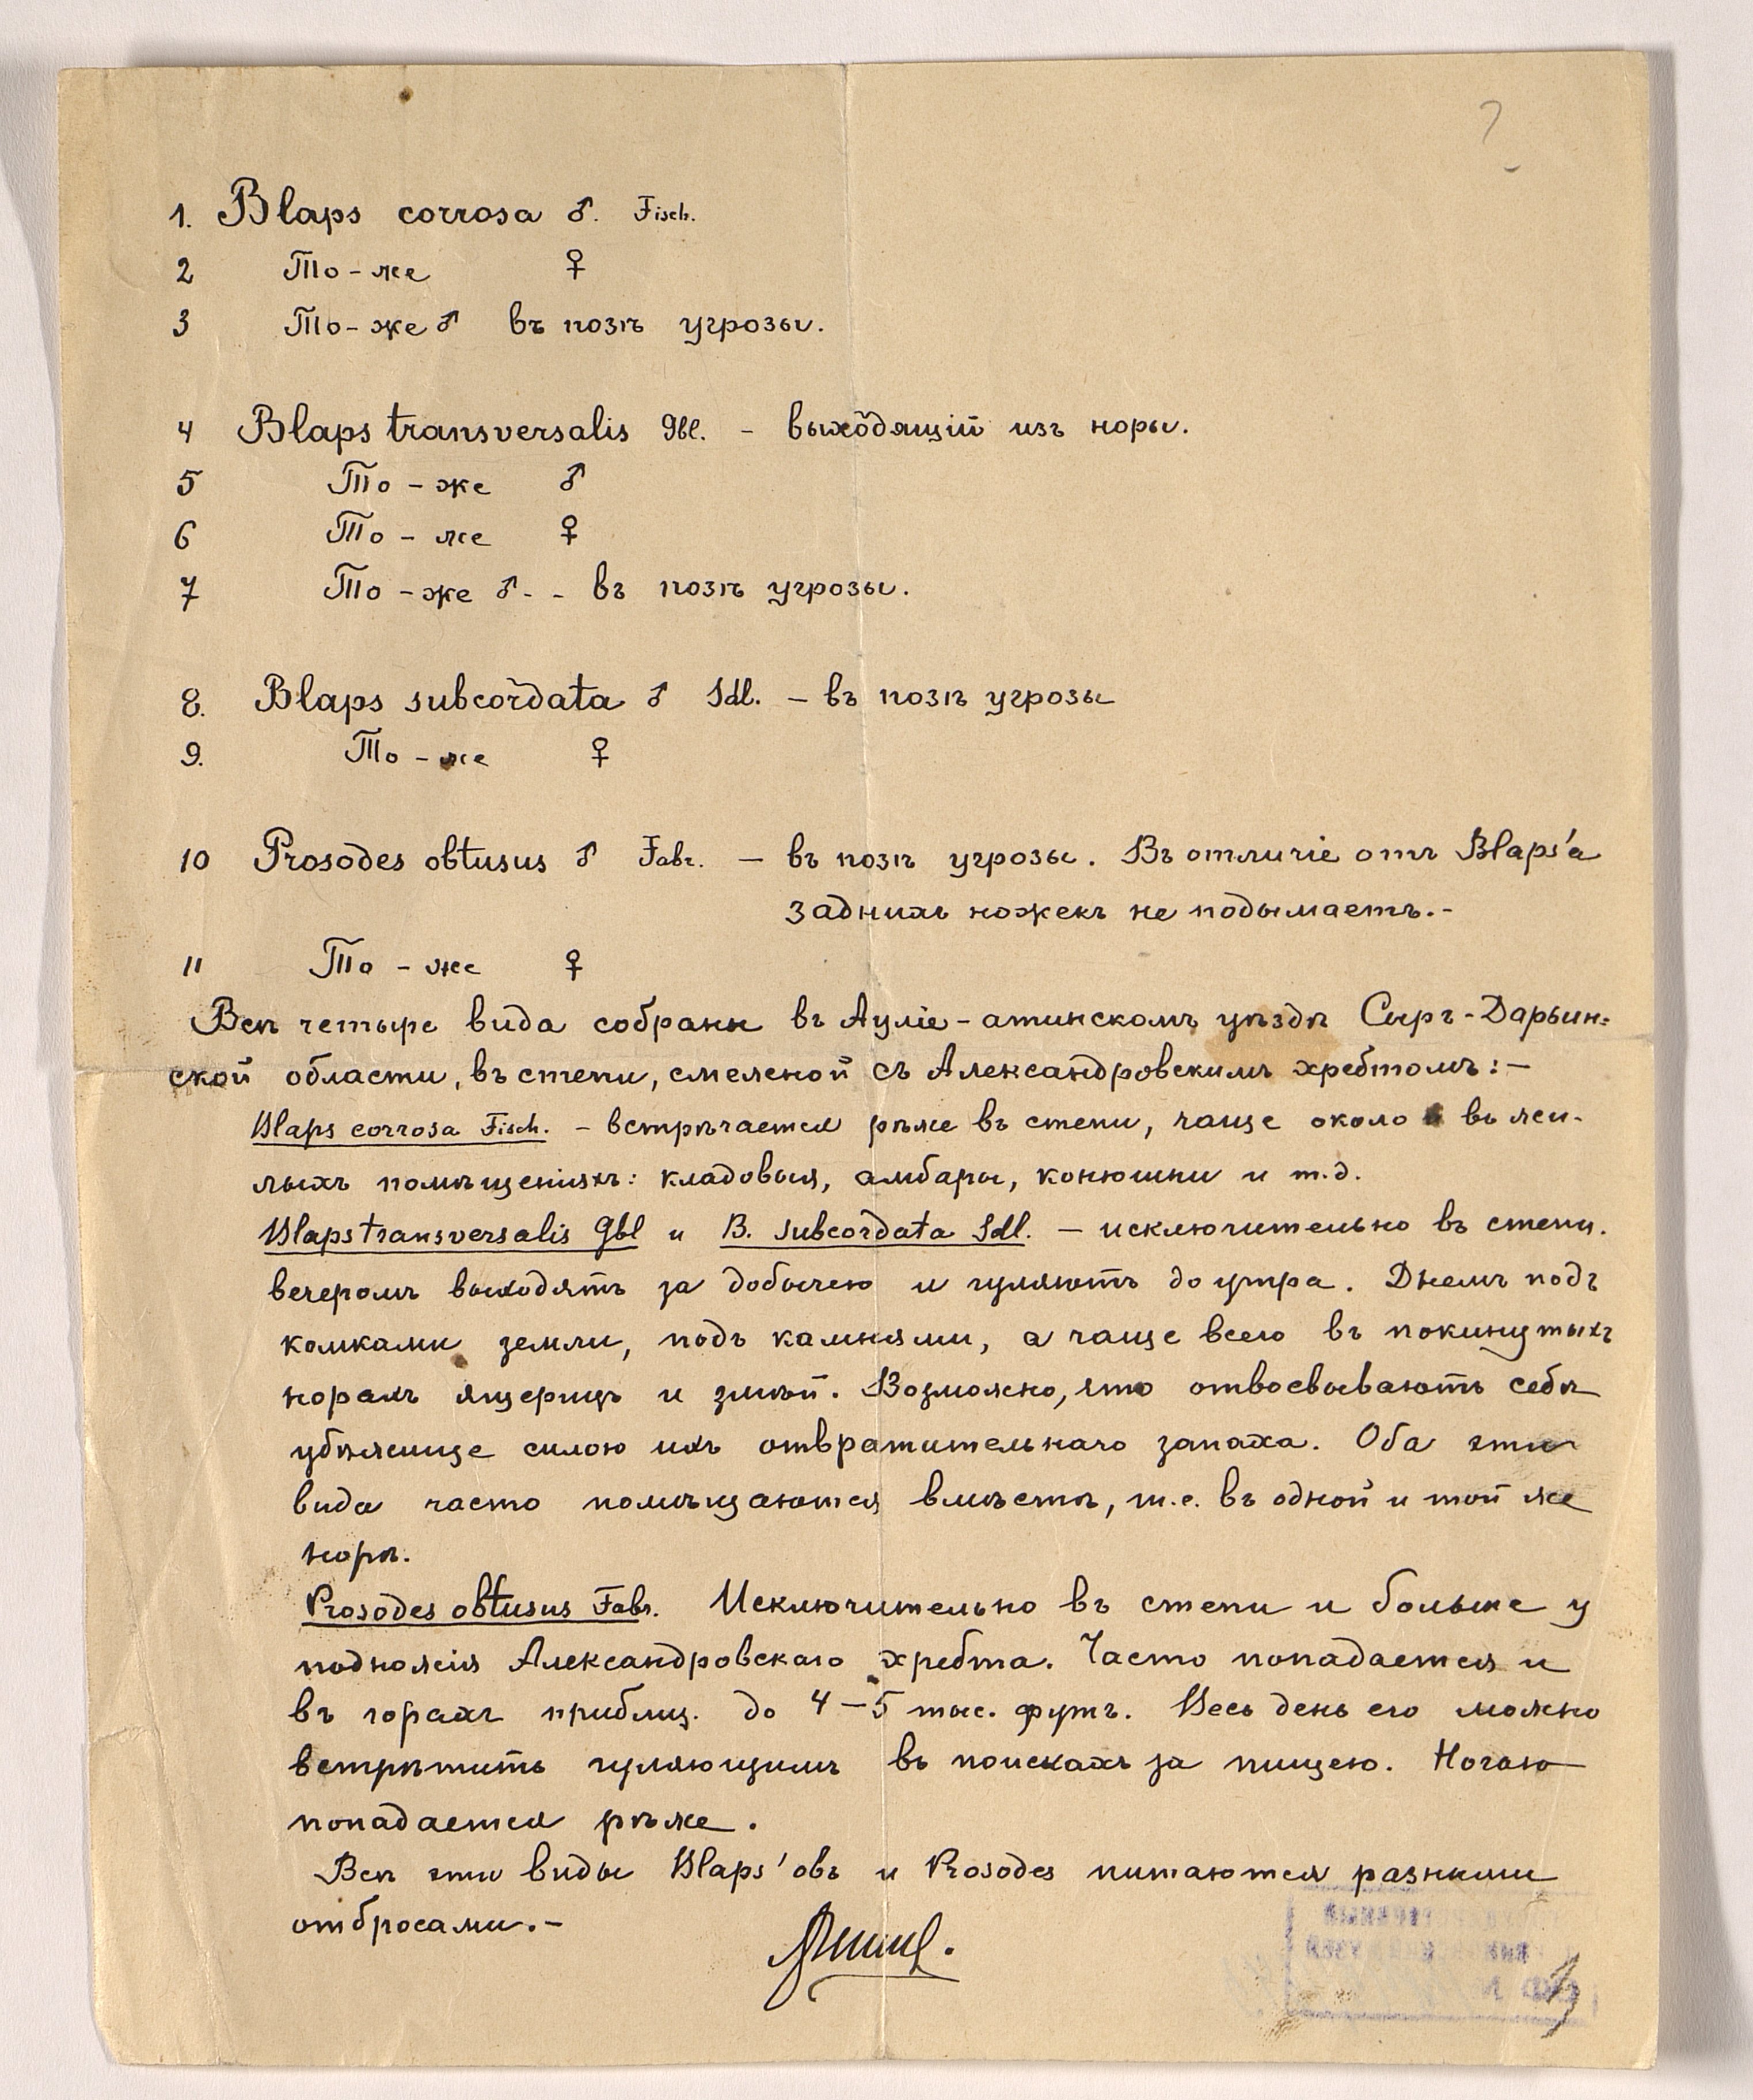 ?
1. Blaps corrosa ♂. Fisch.
2 То-же ♀
3 То-же ♂ въ позѣ угрозы.
4 Blaps transversalis Gbl. - выходящій изъ норы.
5 То-же ♂
6 То-же ♀
7 То-же ♂ - - въ позѣ угрозы.
8. Blaps subcordata ♂ Sdl. — въ позѣ угрозы
9. То-же ♀
10 Prosodes obtusus ♂ Fabr. — въ позѣ угрозы. Въ отличіе отъ Blaps'а
заднихъ ножекъ не подымаетъ.-
11 То-же ♀
Всѣ четыре вида собраны въ Ауліе-атинскомъ уѣздѣ Сыръ-Дарьин=
ской области, въ степи, смежной съ Александровскимъ хребтомъ:-
Blaps corrosa Fisch. - встрѣчается рѣже въ степи, чаще около и въ жи-
лыхъ помѣщеніяхъ: кладовыя, амбары, конюшни и т.д.
Blaps transversalis Gbl и B. subcordata Sdl. — исключительно въ степи.
вечеромъ выходятъ за добычею и гуляютъ до утра. Днемъ подъ
комками земли, подъ камнями, а чаще всего въ покинутыхъ
норахъ ящерицъ и змѣй. Возможно, что отвоевываютъ себѣ
убѣжище силою ихъ отвратительнаго запаха. Оба эти
вида часто помѣщаются вмѣстѣ, т.е. въ одной и той же
норѣ.
Prosodes obtusus Fabr. Исключительно въ степи и больше у
подножія Александровскаго хребта. Часто попадается и
въ горахъ приблиз. до 4—5 тыс. футъ. Весь день его можно
встрѣтить гуляющимъ въ поискахъ за пищею. Ночью
попадается рѣже.
Всѣ эти виды Blaps'овъ и Prosodes питаются разными
отбросами.-